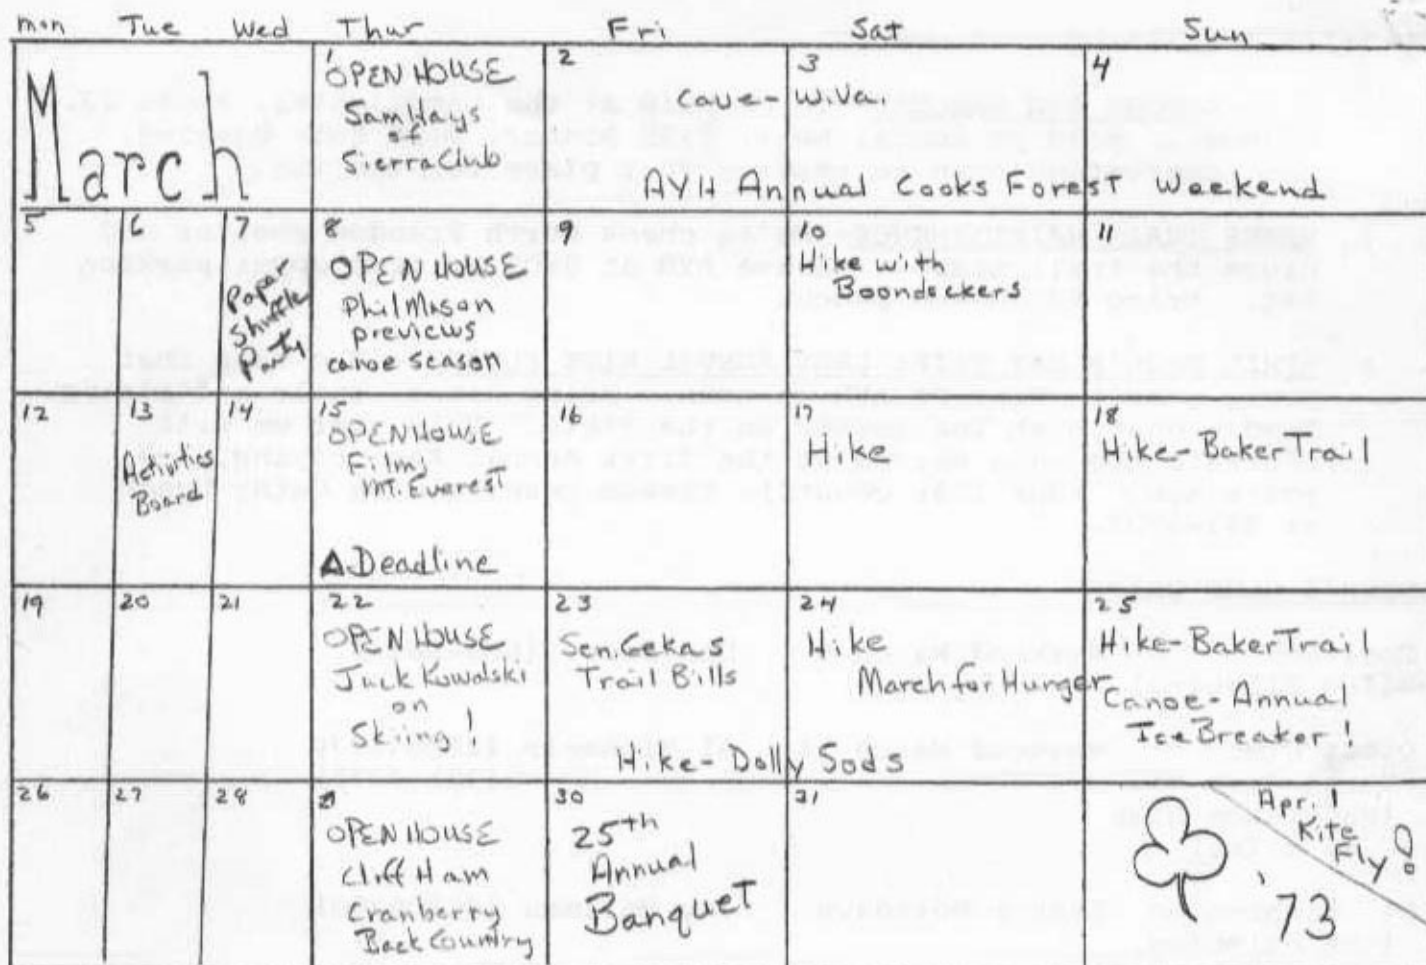 Mon Tue Wed Thur Fri Sat Sun
March
1
OPEN HOUSE
Sam Hays
Sierra Club
2
3
Cave - W.Va.
AYH Annual Cooks Forest Weekend
4
5
6
7
Paper
Shuffler
Party
8
OPEN HOUSE
Phil Mason
previews
canoe season
9
10
Hike with
Boondockers
11
12
13
Activities
Board
14
15
OPEN HOUSE
Film,
Mt. Everest
Δ Deadline
16
17
Hike
18
Hike - Baker Trail
19
20
21
22
OPEN HOUSE
Jack Kowalski
on
Skiing!
23
Sen. Gekas
Trail Bills
Hike - Dolly Sods
24
Hike
March for Hunger
25
Hike - Baker Trail
Canoe - Annual
Ice Breaker!
26
27
28
29
OPEN HOUSE
Cliff Ham
Cranberry
Back Country
30
25th
Annual
Banquet
31
Apr. 1
Kite
Fly!
'73